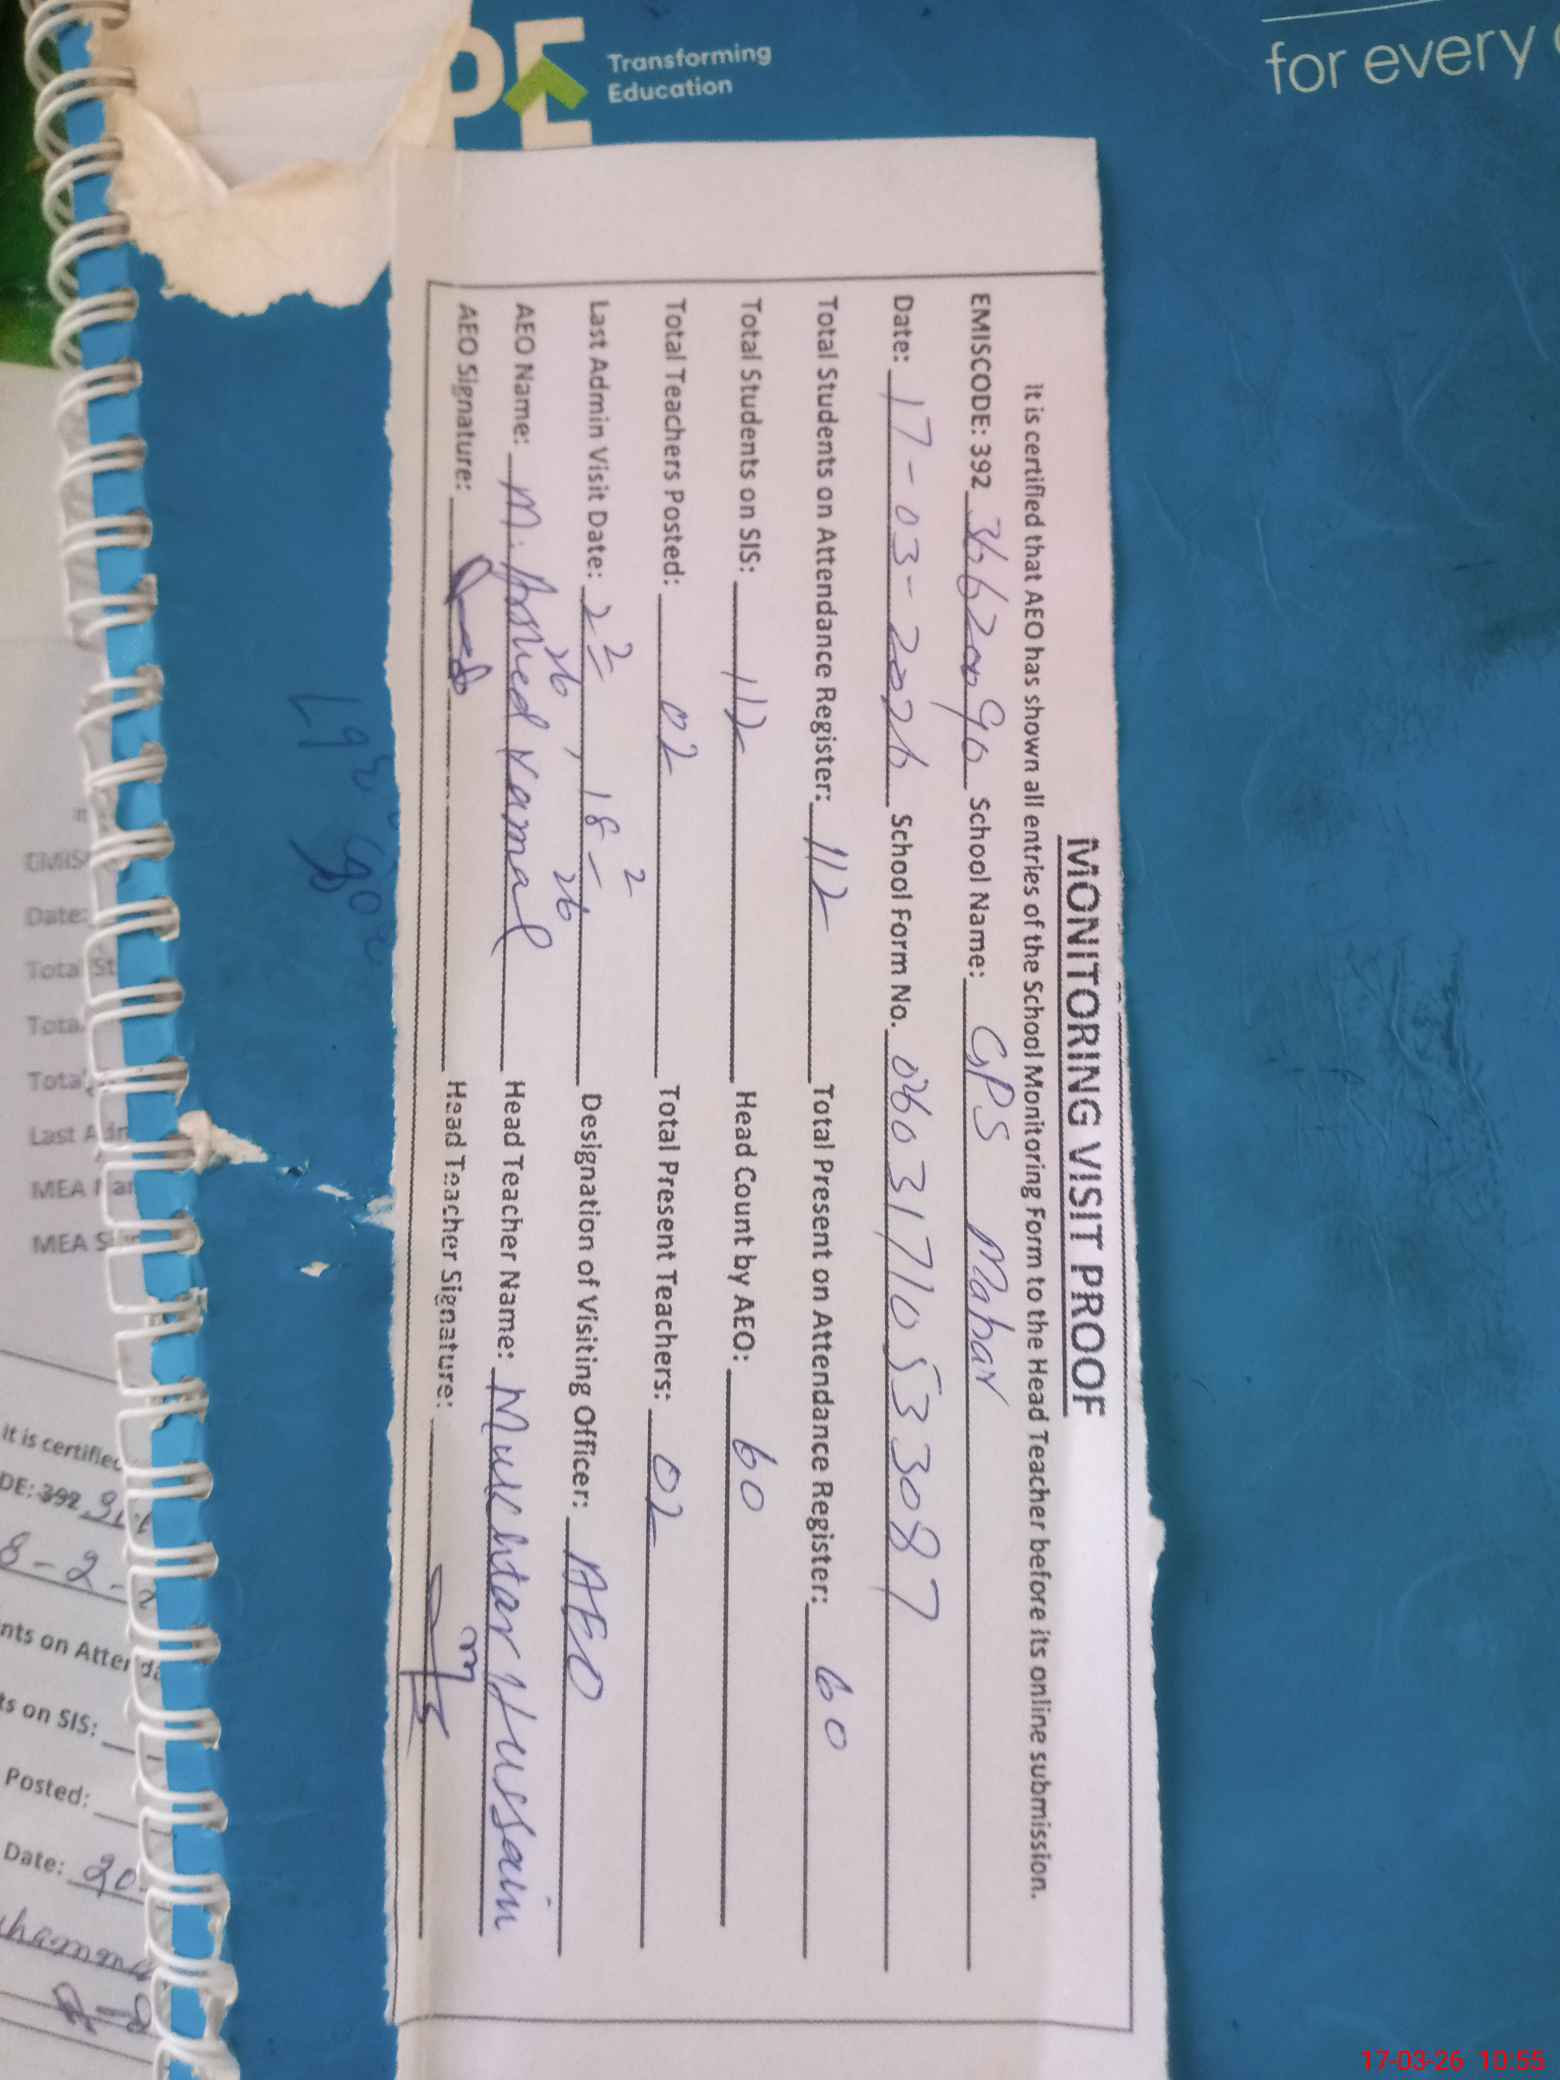 Transforming
Education
for every
MONITORING VISIT PROOF
It is certified that AEO has shown all entries of the School Monitoring Form to the Head Teacher before its online submission.
EMISCODE: 392 School Name: GPS Mahar
Date: 17-03-2026 School Form No. 06031710533087
Total Students on Attendance Register: 112 Total Present on Attendance Register: 60
Total Students on SIS: 112 Head Count by AEO: 60
Total Teachers Posted: 02 Total Present Teachers: 02
Last Admin Visit Date: 2-2-26, 18-2-26 Designation of Visiting Officer: AEO
AEO Name: M. Kamal Head Teacher Name: Mukhtar Hussain
AEO Signature: Head Teacher Signature:
Date:
Total St
Last Adm
it is certified
DE: 392
8-2-2
nts on Attenda
ts on SIS:
Posted:
Date: 20
17-03-26 10:55